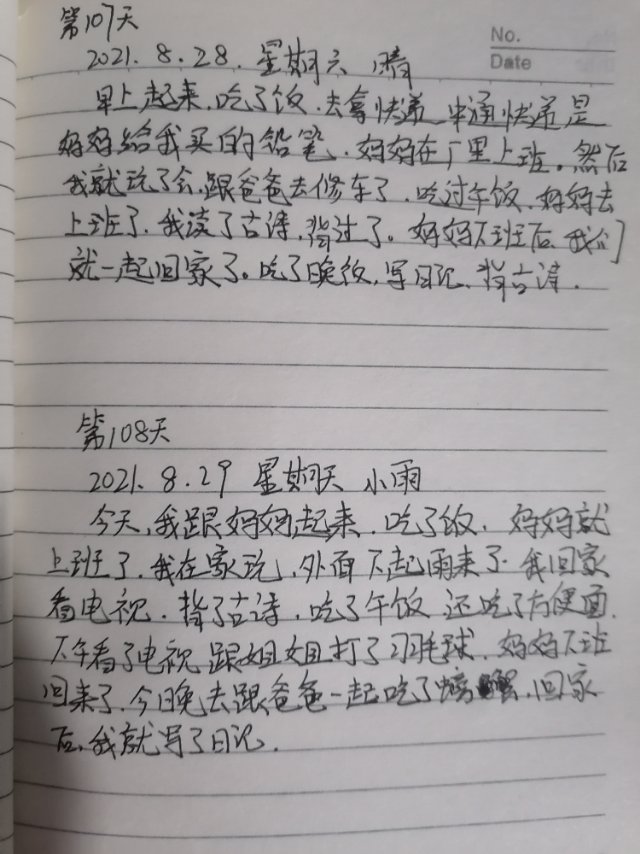 No.
Date
第107天
2021.8.28.星期六 晴
早上起来,吃了饭,去拿快递,中通快递是
妈妈给我买的铅笔,妈妈在厂里上班。然后
我就玩了会,跟爸爸去修车了,吃过午饭,妈妈去
上班了,我读了古诗,背过了。妈妈下班后,我们
就一起回家了。吃了晚饭,写日记,背古诗.
第108天
2021.8.29 星期天 小雨
今天,我跟妈妈起来,吃了饭,妈妈就
上班了,我在家玩,外面下起雨来了.我回家
看电视,背了古诗,吃了午饭,还吃了方便面.
下午看了电视,跟姐姐打了羽毛球,妈妈下班
回来了,今日晚去跟爸爸一起吃了螃蟹,回家
后,我就写了日记.